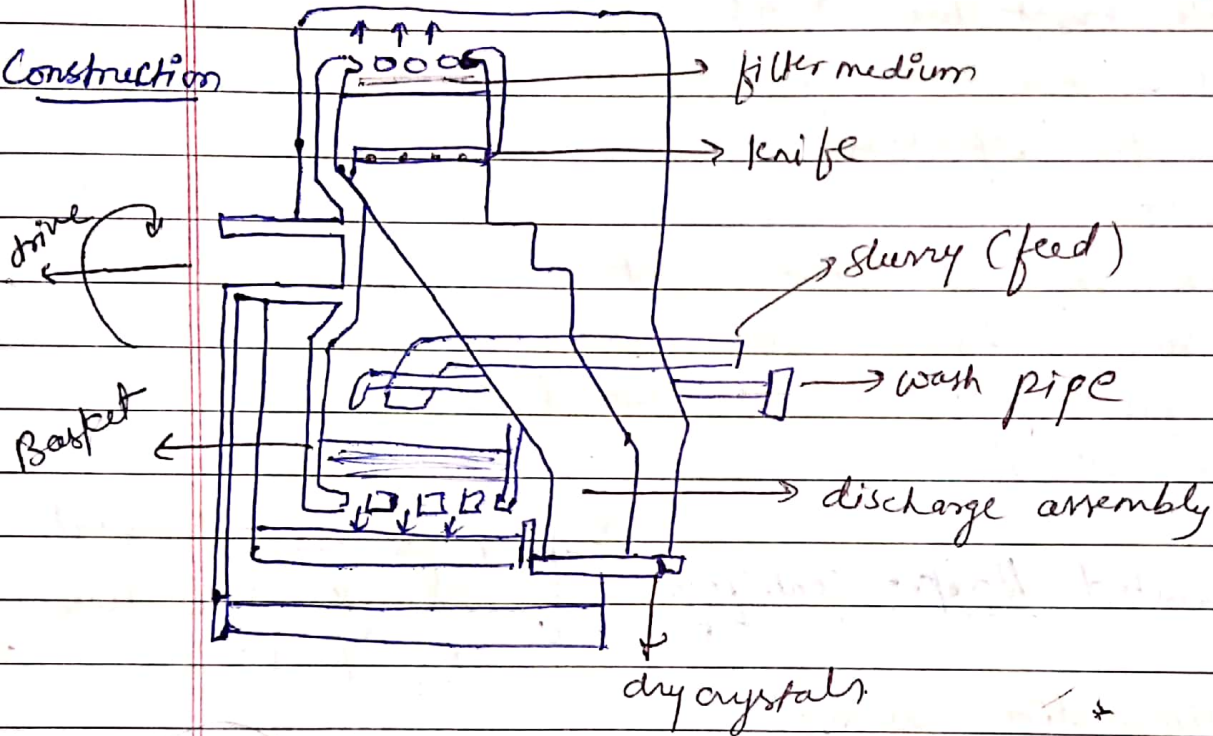 Construction
filter medium
knife
drive
slurry (feed)
wash pipe
Basket
discharge assembly
dry crystals